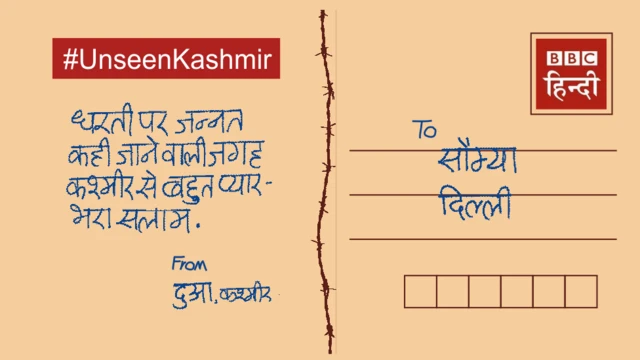 #UnseenKashmir
धरती पर जन्नत
कही जाने वाली जगह
कश्मीर से बहुत प्यार-
भरा सलाम.
From
दुआ, कश्मीर
BBC
हिन्दी
To
सौम्या
दिल्ली